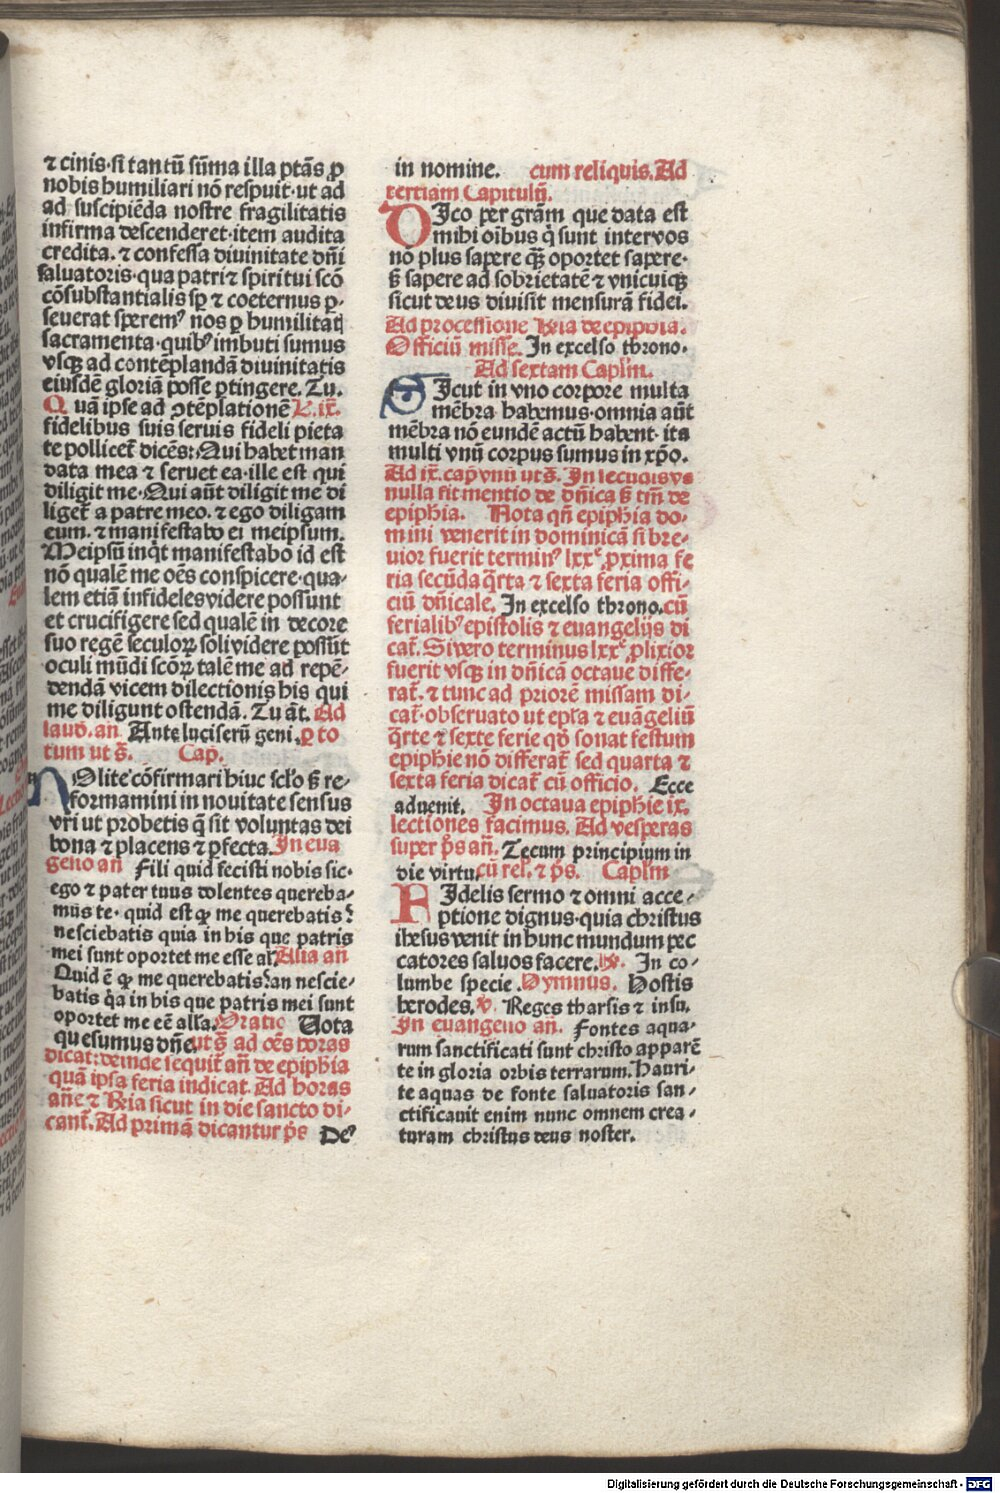 ⁊ cinis·si tantū sūma illa ptās ꝑ
nobis humiliari nō respuit·ut ad
ad suscipiēda nostre fragilitatis
infirma descenderet·item audita
credita·⁊ confessa diuinitate dn̄i
saluatoris·qua patri ⁊ spiritui scō
cōsubstantialis sp̄ ⁊ coeternus ꝑ-
seuerat sperem⁹ nos ꝑ humilitat
sacramenta·quib⁹ imbuti sumus
vsqꝫ ad contēplandā diuinitatis
eiusdē gloriā posse ꝑtingere. Tu.
Quā ipse ad ꝯtēplationē L. ix.
fidelibus suis seruis fideli pieta
te pollicet̄ dicēs: Qui habet man
data mea ⁊ seruet ea·ille est qui
diligit me·Qui aūt diligit me di
liget̄ a patre meo. ⁊ ego diligam
eum·⁊ manifestabo ei meipsum.
Meipsū inq̄t manifestabo id est
nō qualē me oēs conspicere·qua-
lem etiā infideles videre possunt
et crucifigere sed qualē in decore
suo regē seculoꝝ soli videre possūt
oculi mūdi scōꝝ talē me ad repē-
dendā vicem dilectionis his qui
me diligunt ostendā. Tu āt. Ad
laud. an Ante luciferū geni. ꝑ to
tum ut s̄. Cap.
Nolite cōfirmari huic sclo ß re-
formamini in nouitate sensus
vri ut probetis q̄ sit voluntas dei
bona ⁊ placens ⁊ ꝑfecta. In eua
gelio an̄ Fili quid fecisti nobis sic·
ego ⁊ pater tuus dolentes quereba-
mus te·quid est ꝙ me querebatis?
nesciebatis quia in his que patris
mei sunt oportet me esse al'. Alia an̄
Quid ē ꝙ me querebatis? an nescie-
batis q̄a in his que patris mei sunt
oportet me eē alla. Oratio Uota
quesumus dn̄e. ut s̄ ad oēs horas
dicat̄: deinde sequit̄ an̄ de epiphīa
quā ipsa feria indicat. Ad horas
an̄e ⁊ R̄ia sicut in die sancto di-
cant̄. Ad primā dicantur p̄s De⁹
in nomine. cum reliquis. Ad
tertiam Capitulū.
DIco per grām que data est
mihi oībus q̄ sunt inter vos
nō plus sapere qꝫ̄ oportet sapere·
ß sapere ad sobrietatē ⁊ vnicuiqꝫ
sicut deus diuisit mensurā fidei.
Ad processione R̄ia de epiphīa.
Officiū misse. In excelso throno.
Ad sextam Caplm.
SIcut in vno corpore multa
mēbra habemus·omnia aūt
mēbra nō eundē actū habent·ita
multi vnū corpus sumus in xp̄o.
Ad ix. cap̄ vnū ut s̄. In secūdis vs
nulla fit mentio de dn̄ica ß tm̄ de
epiphīa. Nota qn̄ epiphīa do-
mini venerit in dominicā si bre-
uior fuerit termin⁹ lxxᵉ ꝓxima fe
ria secūda q̄rta ⁊ sexta feria offi-
ciū dn̄icale. In excelso throno. cū
ferialib⁹ epistolis ⁊ euangelijs di
cat̄. Si vero terminus lxxᵉ ꝓlixior
fuerit vsqꝫ in dn̄icā octaue differ-
rat̄. ⁊ tunc ad priorē missam di-
cat̄·obseruato ut ep̄la ⁊ euāgeliū
q̄rte ⁊ sexte ferie qd̄ sonat festum
epiphīe nō differat̄ sed quarta ⁊
sexta feria dicat̄ cū officio. Ecce
aduenit. In octaua epiphīe ix.
lectiones facimus. Ad vesperas
super p̄s an̄. Tecum principium in
die virtu. cū rel. ⁊ p̄s. Caplm
FIdelis sermo ⁊ omni acce-
ptione dignus·quia christus
ihesus venit in hunc mundum pec
catores saluos facere. R̄. In co-
lumbe specie. Hymnus. Hostis
herodes. v. Reges tharsis ⁊ insu.
In euangelio an̄. Fontes aqua-
rum sanctificati sunt christo apparē
te in gloria orbis terrarum. Hauri-
te aquas de fonte saluatoris san-
ctificauit enim nunc omnem crea-
turam christus deus noster.
Digitalisierung gefördert durch die Deutsche Forschungsgemeinschaft - DFG